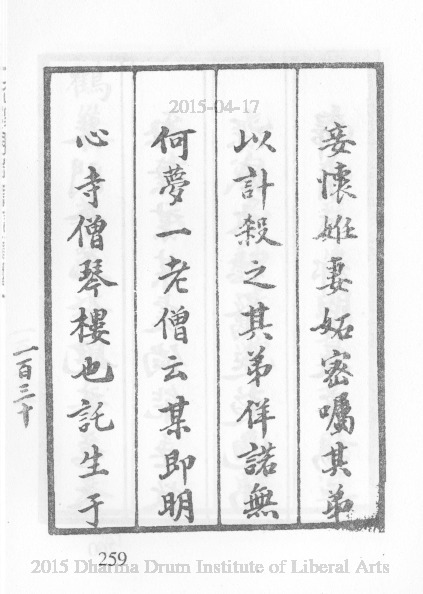 2015-04-17
妾懷姙妻妬密囑其弟
以計殺之其弟佯諾無
何夢一老僧云某即明
心寺僧琴樓也託生于
一百三十
259
2015 Dharma Drum Institute of Liberal Arts